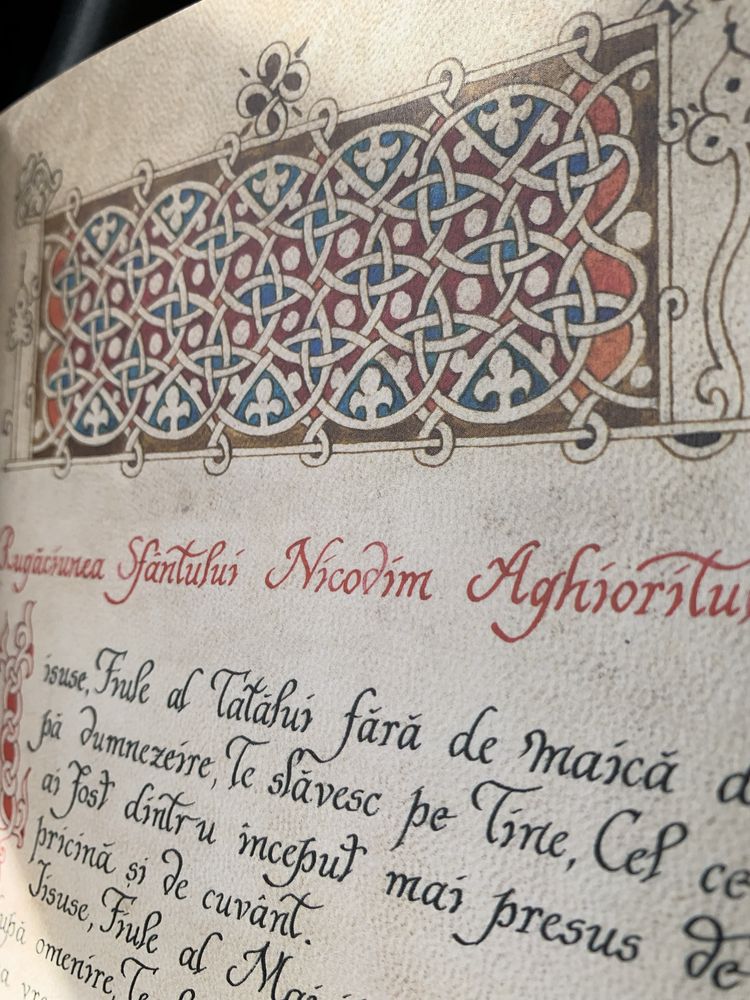 Rugăciunea Sfântului Nicodim Aghioritul
Iisuse, Fiule al Tatălui fără de maică d
pă dumnezeire, Te slăvesc pe Tine, Cel ce
ai fost dintru început mai presus de
pricină și de cuvânt.
Iisuse, Fiule al Mai
după omenire, Te